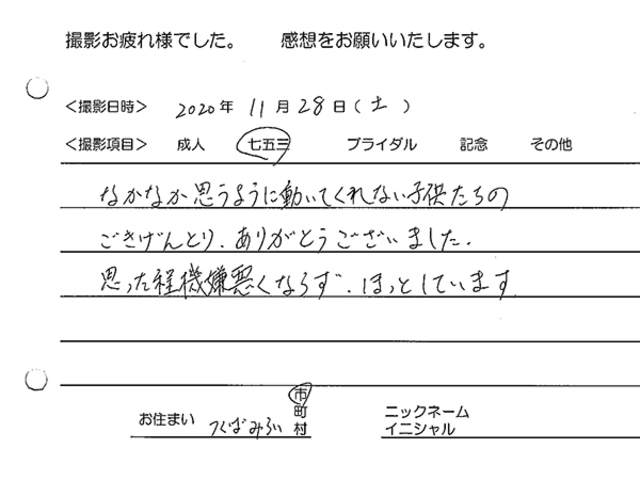 撮影お疲れ様でした。 感想をお願いいたします。
<撮影日時> 2020年 11月 28日(土)
<撮影項目> 成人 七五三 ブライダル 記念 その他
なかなか思うように動いてくれない子供たちの
ごきげんとり、ありがとうございました。
思った程機嫌悪くならず、ほっとしています
お住まい つくばみらい 市町村 ニックネーム
イニシャル